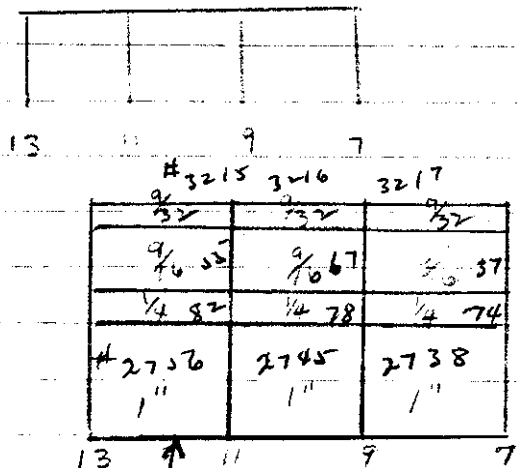 13 11 9 7
#3215 3216 3217
9/32 9/32 9/32
9/16 55 9/16 67 37
1/4 82 1/4 78 1/4 74
#2756 2745 2738
1" 1" 1"
13 11 9 7